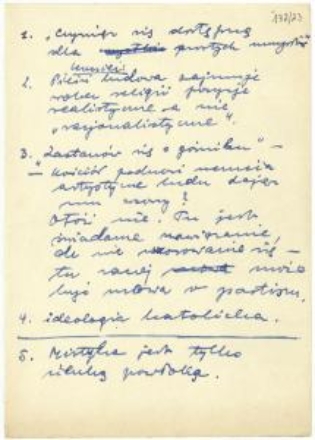 132/23
1. "Czyniąc się dostępną
dla prostych umysłów"
2. Pieśń ludowa zajmuje
wobec religii pozycję
realistyczne a nie
"racjonalistyczne".
3. "Zastanów się o górniku" –
– Kościół podnosi
artystyczne ludu dając
mu wzory?
Otóż nie. Tu jest
świadome nawiązanie,
ale nie wzorowanie się –
tu raczej może
być mowa o
4. ideologia katolicka.
5. Mistyka jest tylko
nikłą powłoką.